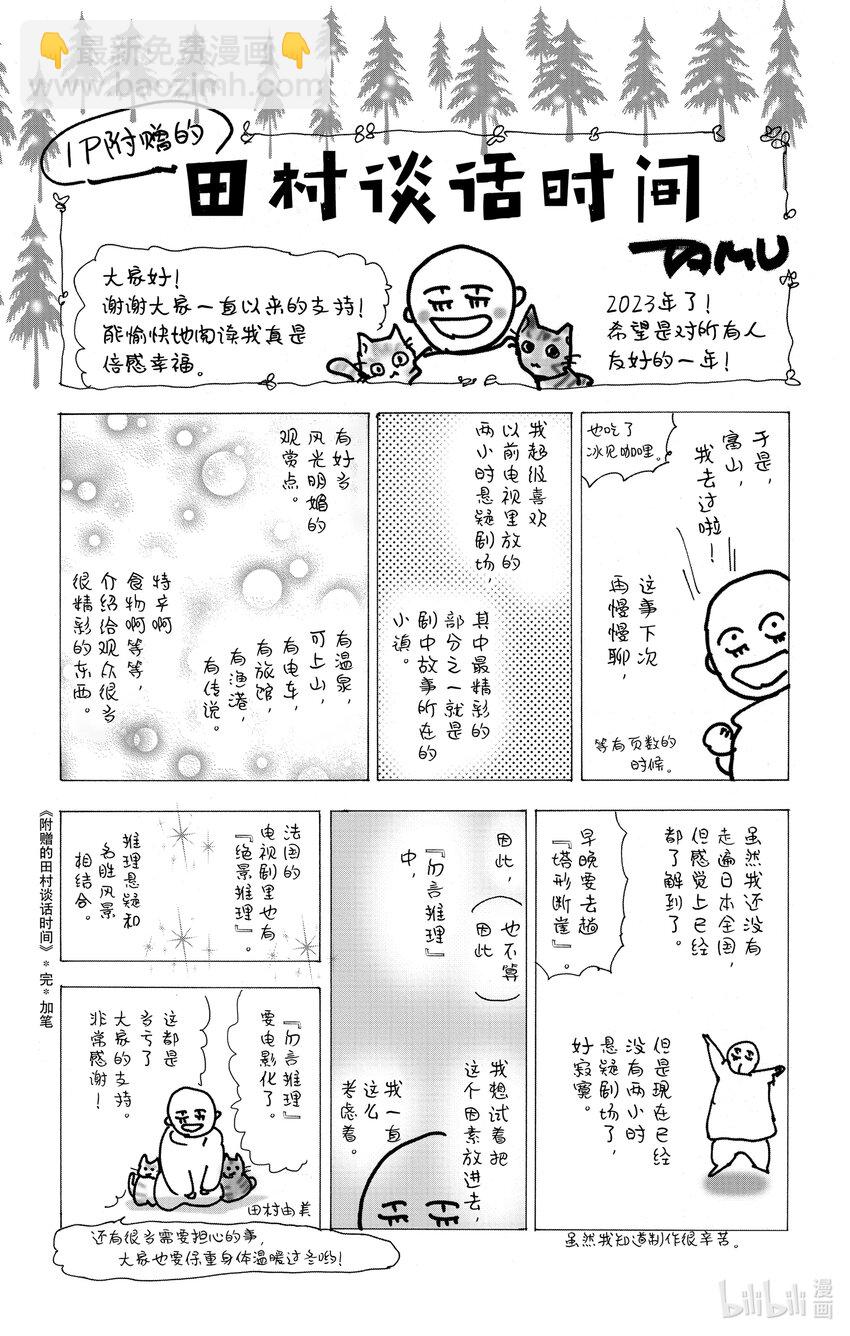 👇最新免费漫画👇
www.baozimh.com
1P附赠的
田村谈话时间
TAMU
大家好！
谢谢大家一直以来的支持！
能愉快地阅读我真是
倍感幸福。
2023年了！
希望是对所有人
友好的一年！
于是，
富山，
我去过啦！
也吃了
冰见咖哩。
这事下次
再慢慢聊，
等有页数的
时候。
我超级喜欢
以前电视里放的
两小时悬疑剧场，
其中最精彩的
部分之一就是
剧中故事所在的
小镇。
有好多
风光明媚的
观赏点。
有温泉，
可上山，
有电车，
有旅馆，
有渔港，
有传说。
特产啊
食物啊等等，
介绍给观众很多
很精彩的东西。
虽然我还没有
走遍日本全国，
但感觉上已经
都了解到了。
早晚要去趟
『塔形断崖』。
但是现在已经
没有两小时
悬疑剧场了，
好寂寞。
虽然我知道制作很辛苦。
因此，
（也不算
因此）
『勿言推理』
中，
我想试着把
这个因素放进去，
我一直
这么
考虑着。
法国的
电视剧里也有
『绝景推理』。
推理悬疑和
名胜风景
相结合。
『勿言推理』
要电影化了。
这都是
多亏了
大家的支持。
非常感谢！
田村由美
还有很多需要担心的事，
大家也要保重身体温暖过冬哟！
《附赠的田村谈话时间》＊完＊加笔
bilibili
漫画